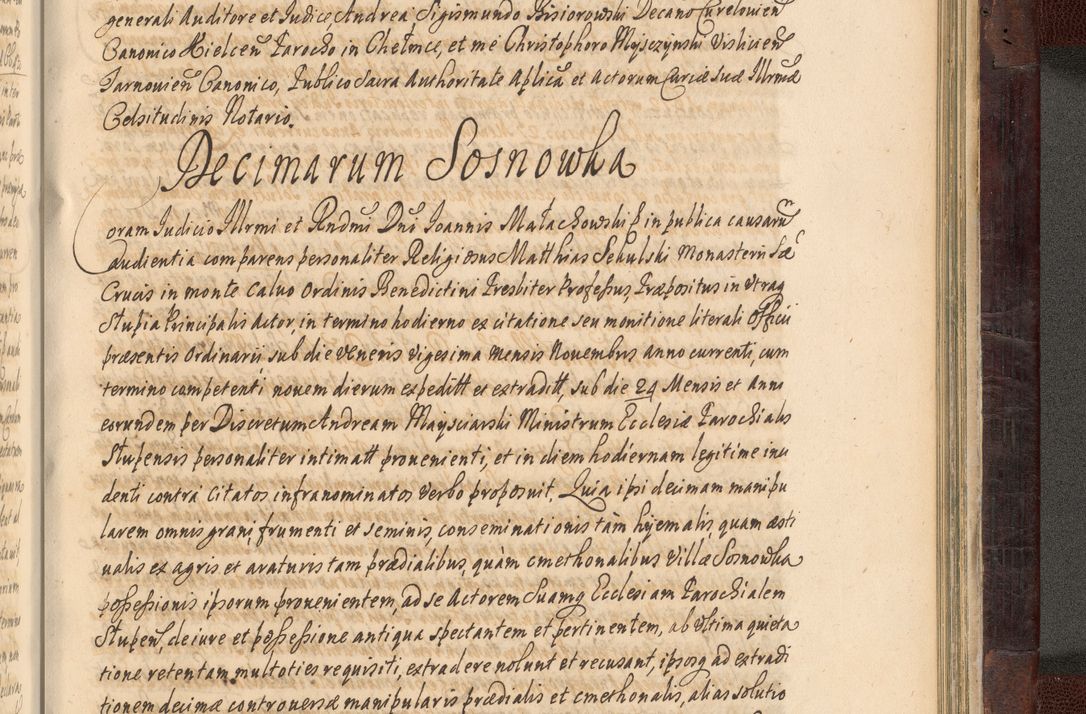 generali Auditore et Iudice Andrea Sigismundo Bisiorowski Decano Curelouien
Canonico Kielcen Parocho in Chełmce, et me Christophoro Mysczynski Visliciens
Tarnouien Canonico, Publico Sacra Authoritate Aplica et Actorum Curiæ Suæ Illrmæ
Celsitudinis Notario.
Decimarum Sosnowka
Coram Iudicio Illrmi et Rndmi Dni Ioannis Małachowski in publica causarũ
audientia comparens personaliter Religiosus Matthias Sekulski Monasterii Sæ
Crucis in monte Caluo Ordinis Benedictini Presbiter Professus, Præpositus in utraq
Stupia Principalis Actor, in termino hodierno ex citatione seu monitione literali Officii
præsentis Ordinarii sub die Veneris vigesima Mensis Nouembris anno currenti, cum
termino competenti nouem dierum expeditt et extraditt, sub die 24 Mensis et Anni
eorundem per Discretum Andream Maysciarski Ministrum Ecclesiæ Parochialis
Stupensis personaliter intimatt prouenienti, et in diem hodiernam legitime inci
denti contra Citatos infranominatos verbo proposuit, Quia ipsi decimam manipu
larem omnis grani, frumenti et seminis, conseminationis tàm hyemalis, quam æsti
ualis ex agris et araturis tam prædialibus, quàm cmethonalibus Villæ Sosnowka
possessionis ipsorum prouenientem, ad se Actorem Suamq Ecclesiam Parochialem
Stupen, de iure et possessione antiqua spectantem et pertinentem, ab vltima quieta
tione retentam multoties requisiti, extradere nolunt et recusant, ipsosq ad extradi
tionem decimæ controuersæ manipularis prædialis et cmethonalis, alias solutio